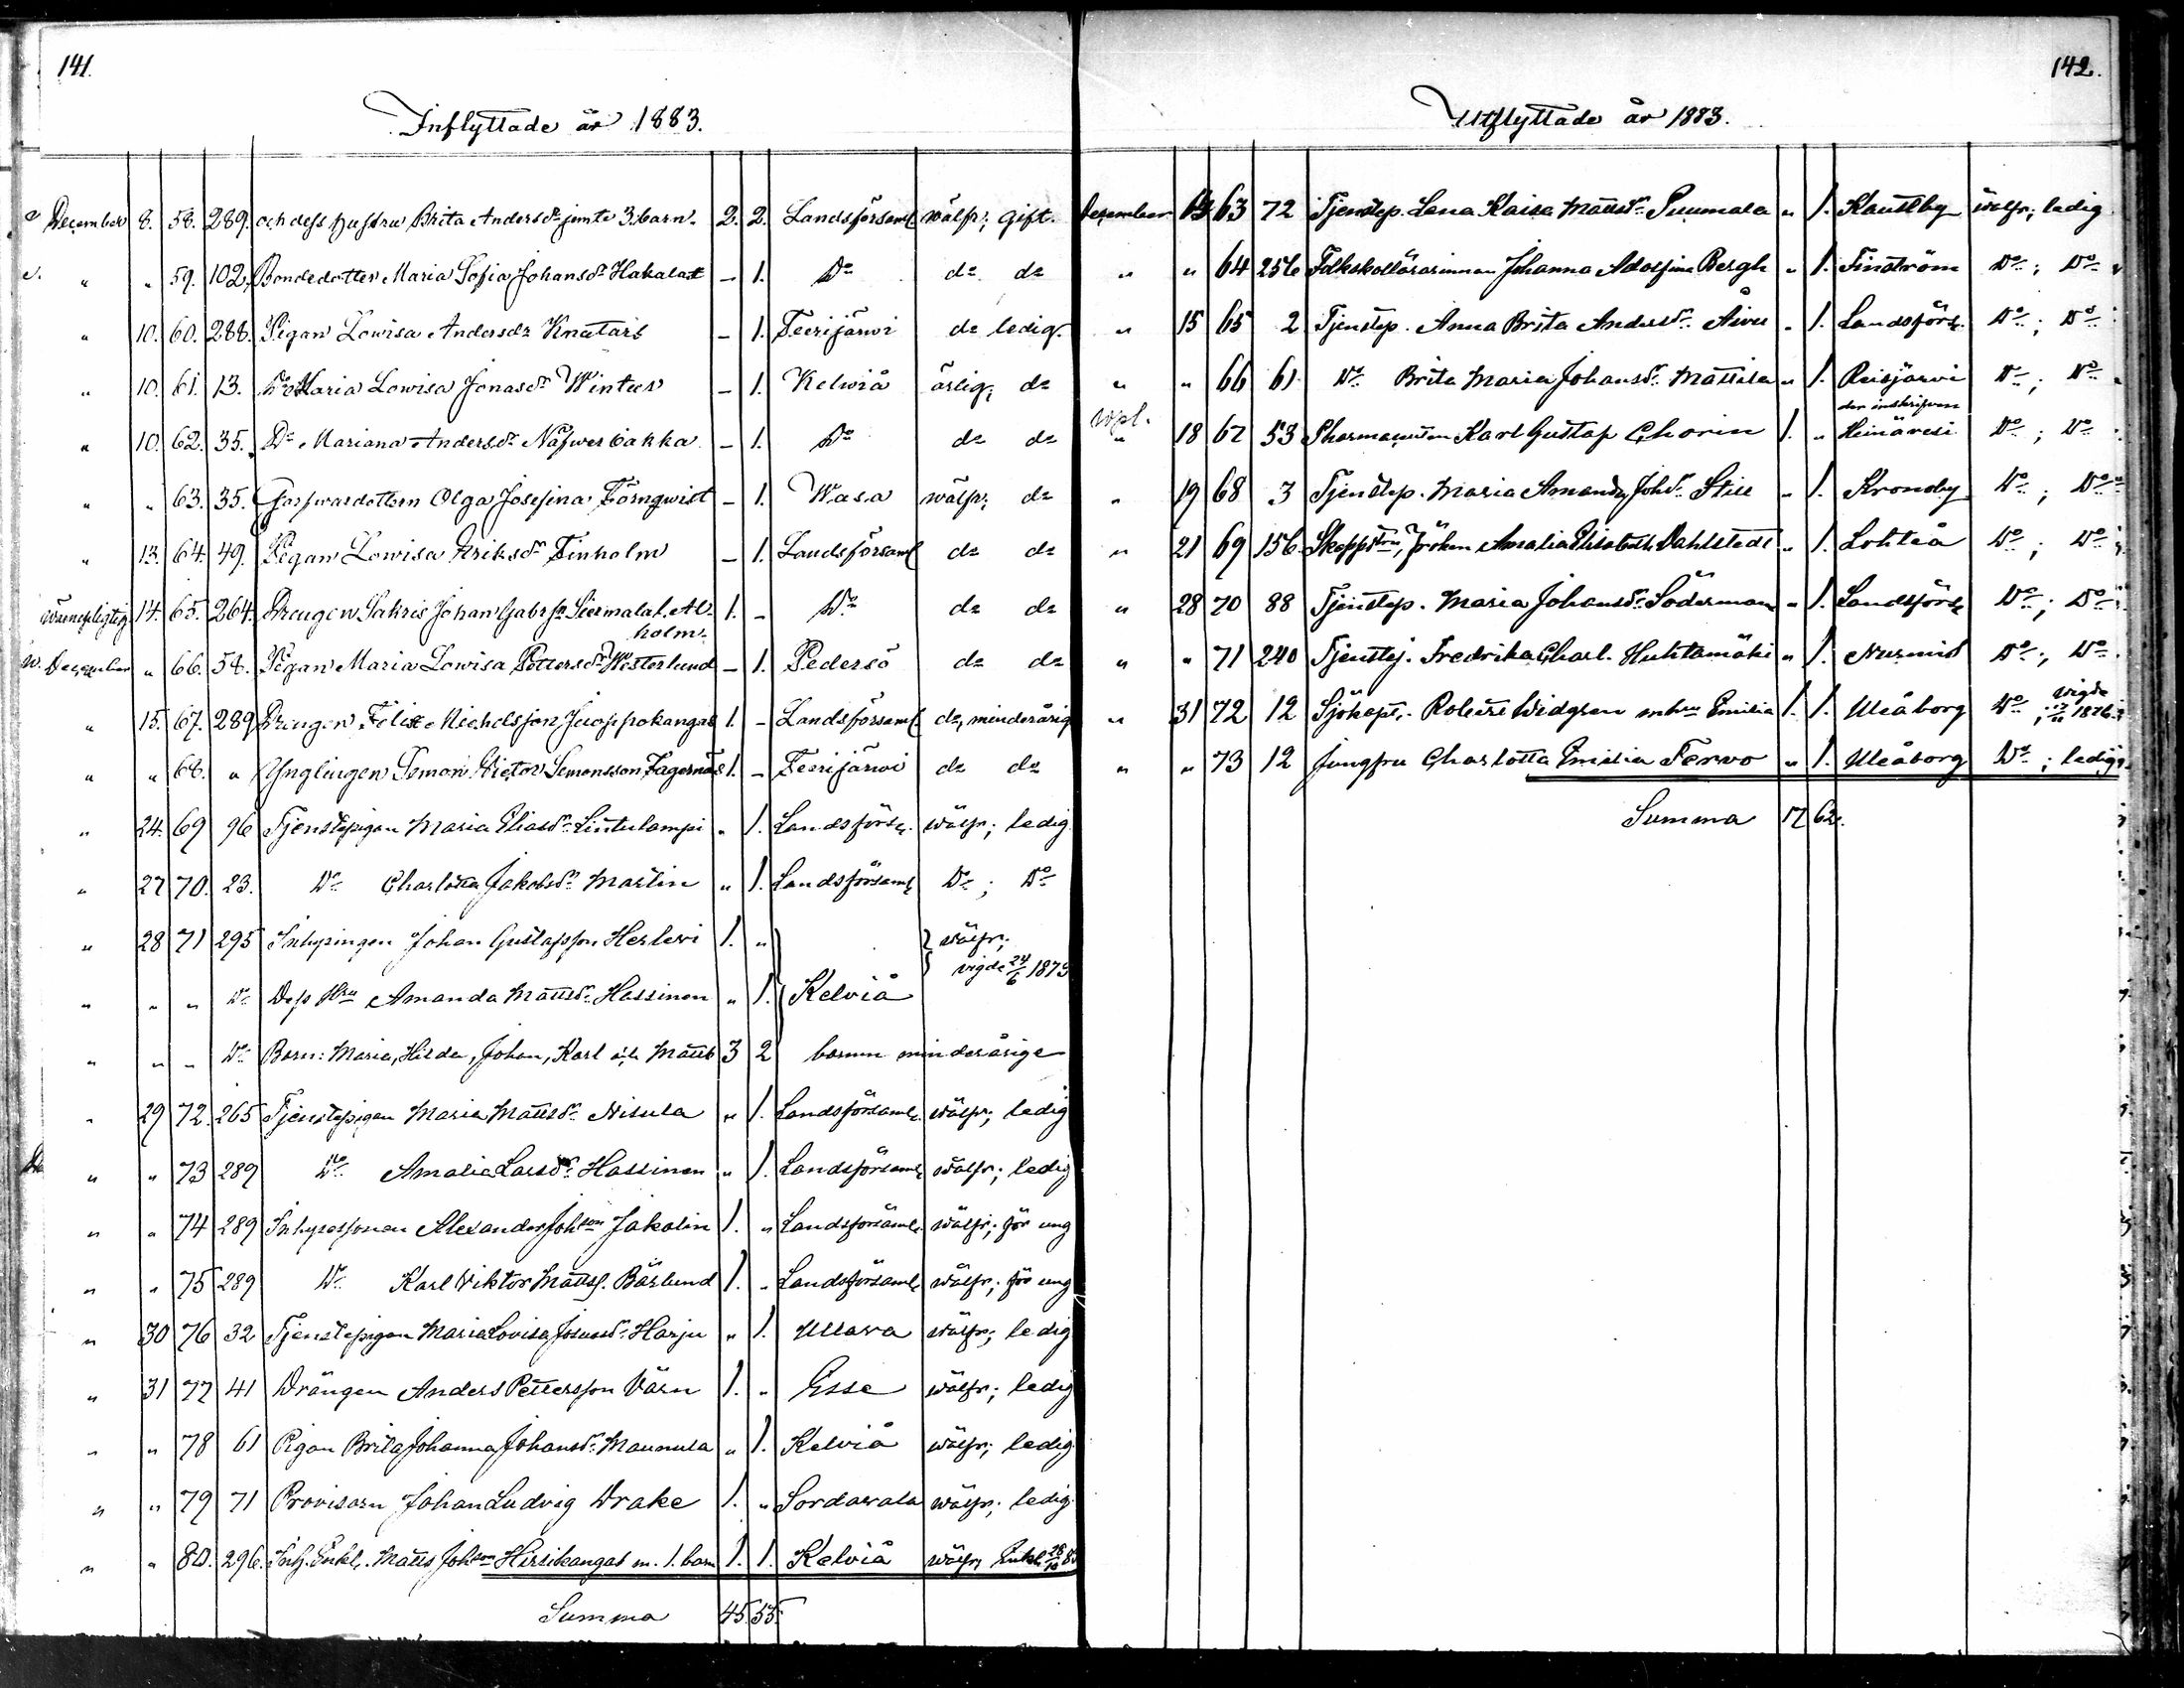 141.
Inflyttade år 1883.
December 8. 58. 289. och dess hustru Brita Andersdr jemte 3 barn. 2. 2. Landsförsaml wälfr; gift.
" " 59. 102. Bondedotter Maria Sofia Johansdr Hakalax - 1. Do do do
" 10. 60. 288. Pigan Lowisa Andersdr Knutars - 1. Teerijärwi do ledig.
" 10. 61. 13. Do Maria Lowisa Jonasdr Winter - 1. Kelwiå ärlig; do
" 10. 62. 35. Do Mariana Andersdr - 1. Do do do
" " 63. 35. Olga Josefina Törnqwist - 1. Wasa wälfr; do
" 13. 64. 49. Pigan Lowisa Eriksdr Finholm - 1. Landsförsaml do do
14. 65. 264. Drengen Sakris Johan 1. - Do do do
holm
December " 66. 58. Pigan Maria Lowisa Pettersdr Westerlund - 1. Pedersö do do
" 15. 67. 289 Drengen Felix Michelsson Juoppokangas 1. - Landsförsaml do, minderårig
" " 68. " Ynglingen Simon Victor Simonsson Fagernäs 1. - Teerijärwi do do
" 24. 69 96 Tjenstepigan Maria Eliasdr Lintulampi " 1. Landsförs. wälfr; ledig
" 27 70. 23. Do Charlotta Jakobsdr Martin " 1. Landsförsaml Do; Do
" 28 71 295 Inhysingen Johan Gustafsson Herlevi 1. " wälfr;
vigde 24/6 1873
" " " Do Dess Hru Amanda Mattsdr Hassinen " 1. Kelviå
" " " Do Barn: Maria, Hilda, Johan, Karl och Matts 3 2 barnen minderårige
" 29 72. 265 Tjenstepigan Maria Mattsdr Nisula " 1. Landsförsaml. wälfr; ledig
" " 73 289 Do Amalia Larsdr Hassinen " 1. Landsförsaml. wälfr; ledig
" " 74 289 Inhysessonen Alexander Johson Jakolin 1. " Landsförsaml. wälfr; för ung
" " 75 289 Do Karl Viktor Mattss. Bärlund 1. " Landsförsaml. wälfr; för ung
" 30 76 32 Tjenstepigan Maria Lovisa Josuasdr Harju " 1. Ullava wälfr; ledig
" 31 77 41 Drängen Anders Pettersson Värn 1. " Esse wälfr; ledig
" " 78 61 Pigan Brita Johanna Johansdr Maunula " 1. Kelviå wälfr; ledig
" " 79 71 Provisorn Johan Ludvig Drake 1. " Sordavala wälfr; ledig
" " 80. 296. Inh. Enkl. Matts Johson Hirsikangas m. 1. barn 1. 1. Kelviå wälfr; Enkl.
Summa 45. 55.
142.
Utflyttade år 1883.
December 14 63 72 Tjenstep. Lena Kaisa Mattsdr Puumala " 1. Kaustby wälfr; ledig
" " 64 256 Folkskollärarinnan Johanna Adolfina Bergh " 1. Finström Do; Do
" 15 65 2 Tjenstep. Anna Brita Andersdr Åivu " 1. Landsförs. Do; Do
" " 66 61 Do Brita Maria Johansdr Mattila " 1. Reisjärvi Do; Do
wpl. der inskrifven
" 18 67 53 Pharmaceuten Karl Gustaf Chorin 1. " Heinävesi Do; Do
" 19 68 3 Tjenstep. Maria Amanda Johdr Still " 1. Kronoby Do; Do
" 21 69 156 Skeppston, Fröken Amalia Elisabeth Dahlstedt " 1. Lohteå Do; Do
" 28 70 88 Tjenstep. Maria Johansdr Söderman " 1. Landsförs. Do; Do
" " 71 240 Tjenstej. Fredrika Charl. Huhtamäki " 1. Nurmis Do; Do
" 31 72 12 Sjökapt. Robert Widgren m hu Emilia 1. 1. Uleåborg Do; vigde 1876
" " 73 12 Jungfru Charlotta Emilia Tervo " 1. Uleåborg Do; ledig
Summa 17 62.